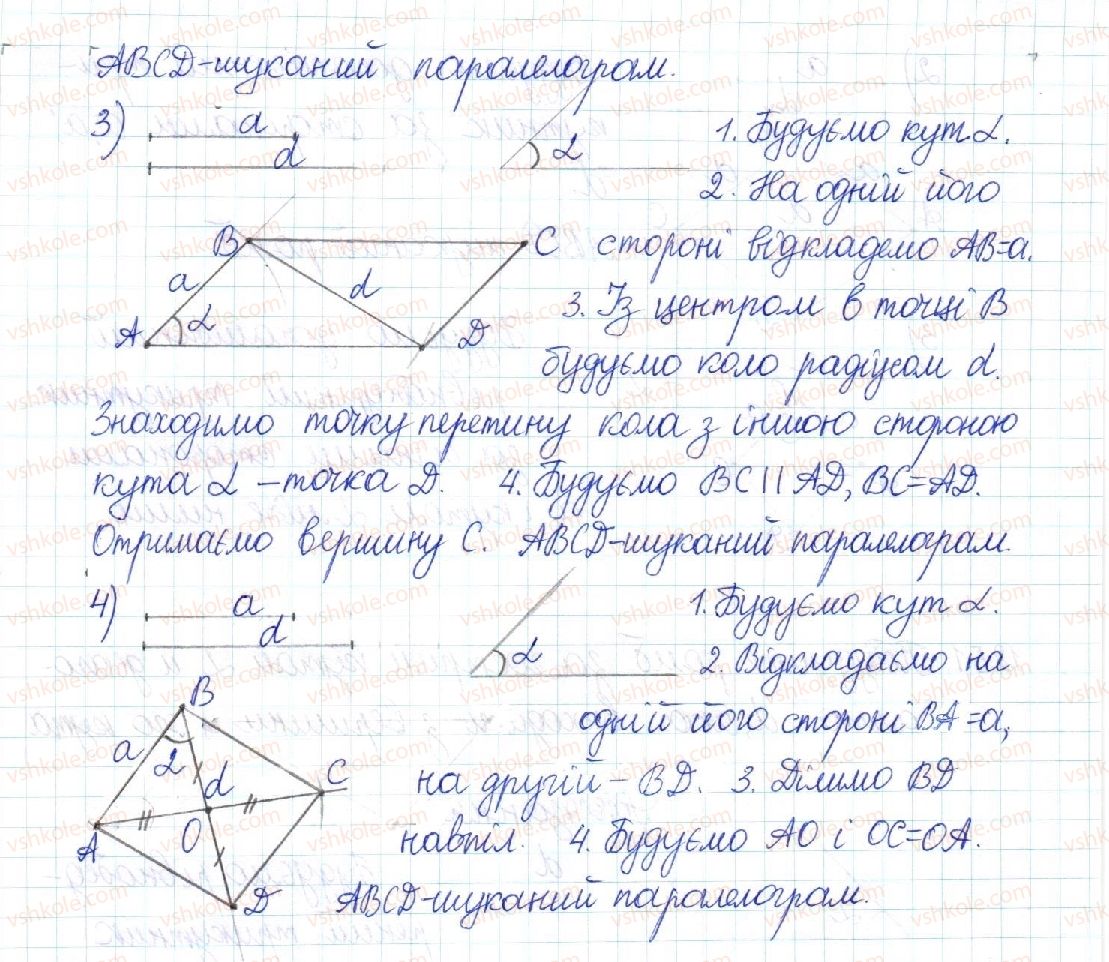 ABCD-шуканий паралелограм.
3) a
d
α
1. Будуємо кут α.
2. На одній його
стороні відкладемо AB=a.
3. Із центром в точці B
будуємо коло радіусом d.
B C
a d
A α D
Знаходимо точку перетину кола з іншою стороною
кута α – точка D. 4. Будуємо BC || AD, BC=AD.
Отримаємо вершину C. ABCD-шуканий паралелограм.
4) a
d
α
1. Будуємо кут α.
2. Відкладаємо на
одній його стороні BA=a,
на другій – BD. 3. Ділимо BD
навпіл. 4. Будуємо AO і OC=OA.
ABCD-шуканий паралелограм.
B
a α d C
A O
D
vshkole.com